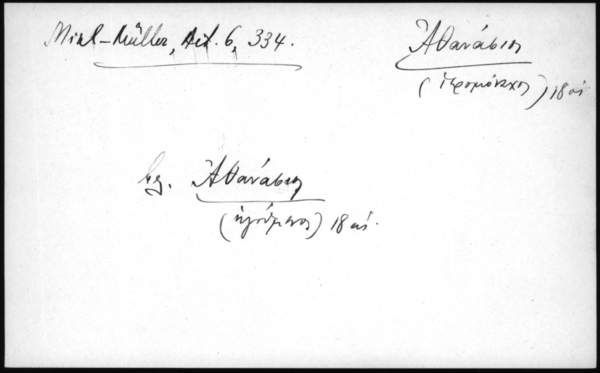 Mikl-Müller, Act. 6, 334.
Ἀθανάσιος
(ἱερομόναχος) 18 αἰ
Ἀθανάσιος
(ἡγούμενος) 18 αἰ.